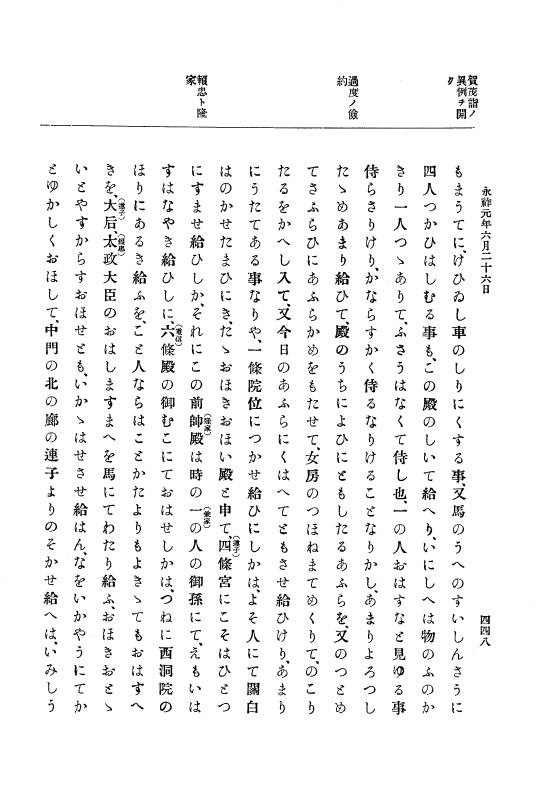 賀茂詣ノ
異例ヲ開
ク
過度ノ儉
約
頼忠ト隆
家
永祚元年六月二十六日
四四八
もまうてに、けひゐし車のしりにくする事、又馬のうへのすいしんさうに
四人つかひはしむる事も、この殿のしいて給へり、いにしへは物のふのか
きり一人つゝありて、ふさうはなくて侍し也、一の人おはすなと見ゆる事
侍らさりけり、かならすかく侍るなりけることなりかし、あまりよろつし
たゝめあまり給ひて、殿のうちによひにともしたるあふらを、又のつとめ
てさふらひにあふらかめをもたせて、女房のつほねまてめくりて、のこり
たるをかへし入て、又今日のあふらにくはへてともさせ給ひけり、あまり
にうたてある事なりや、一條院位につかせ給ひにしかは、よそ人にて關白
はのかせたまひにき、たゝおほきおほい殿と申て、四條宮にこそはひとつ
(遵子)
にすませ給ひしか、それにこの前帥殿は時の一の人の御孫にて、えもいは
(隆家)
(兼家)
すはなやき給ひしに、六條殿の御むこにておはせしかは、つねに西洞院の
(重信)
ほりにあるき給ふを、こと人ならはことかたよりもよきゝてもおはすへ
きを、大后、太政大臣のおはしますまへを馬にてわたり給ふ、おほきおとゝ
(遵子)
(頼忠)
いとやすからすおほせとも、いかゝはせさせ給はん、なをいかやうにてか
とゆかしくおほして、中門の北の廊の連子よりのそかせ給へは、いみしう